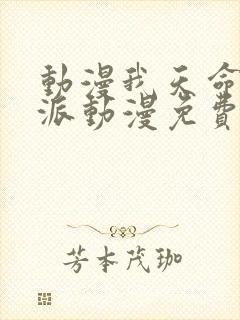 動漫我天命
派動漫免費
芳本茂珈